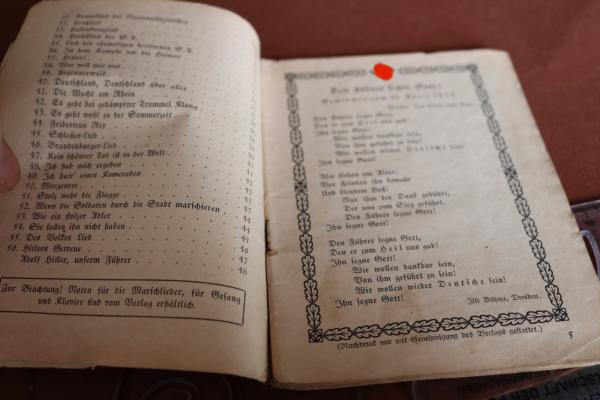 31. Kampflied der Nationalsozialisten
32. Kreuzlied
33. Hakenkreuzlied
34. Kampflied der S.A.
35. Lied der ehemaligen berittenen S.A.
36. In dem Kampfe um die Heimat
38. Wer will mit uns
39. Argonnerwald
40. Deutschland, Deutschland über alles
41. Die Wacht am Rhein
42. Es geht bei gedämpfter Trommel Klang
43. Es geht wohl zu der Sommerzeit
44. Fridericus Rex
45. Schlesier-Lied
46. Brandenburger-Lied
47. Kein schönrer Tod ist in der Welt
48. Ich hab mich ergeben
49. Ich hatt' einen Kameraden
50. Morgenrot
51. Stolz weht die Flagge
52. Wenn die Soldaten durch die Stadt marschieren
53. Wie ein stolzer Adler
54. Sie sollen ihn nicht haben
55. Des Volkes Lied
56. Hitlers Getreue
Adolf Hitler, unserm Führer
44
45
45
46
47
47
48
Zur Beachtung! Noten für die Marschlieder, für Gesang
und Klavier sind vom Verlag erhältlich.
Den Führer segne Gott!
Den Führer segne Gott,
Den er zum Heil uns gab!
Ihn segne Gott!
Wir wollen dankbar sein,
Von ihm geführt zu sein!
Wir wollen wieder Deutsche sein!
Ihn segne Gott!
Wir lieben am Altar:
Ihn segne Gott!
Nur ihm der Dank gebührt,
Der uns zum Sieg geführt,
Den Führer segne Gott!
Ihn segne Gott!
Den Führer segne Gott,
Den er zum Heil uns gab!
Ihn segne Gott!
Wir wollen dankbar sein,
Von ihm geführt zu sein!
Wir wollen wieder Deutsche sein!
Ihn segne Gott!
Ilse Böhme, Dresden.
(Nachdruck nur mit Genehmigung des Verlags gestattet.)
5